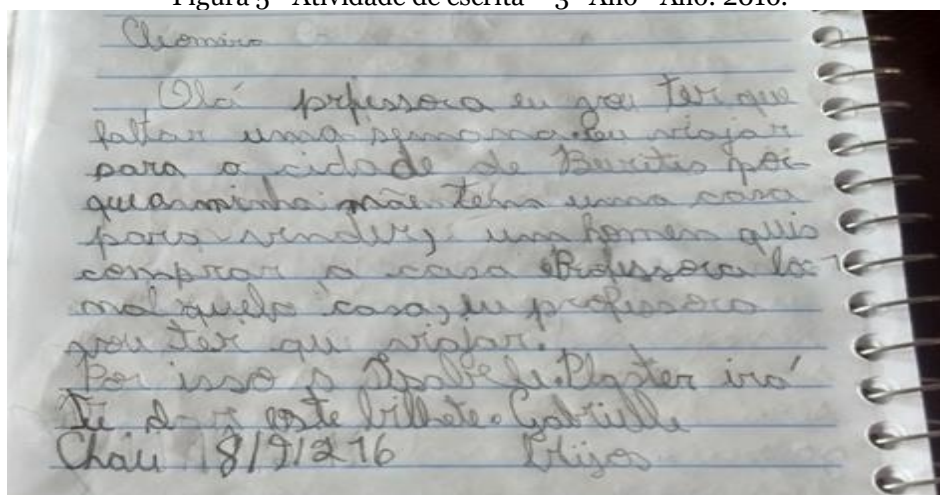 Figura 5 - Atividade de escrita – 3º Ano - Ano: 2016.
Cleomira
Olá prfessora eu vou ter que
faltar uma semana. Eu viajar
para a cidade de Buritis por
que a minha mãe tem uma casa
para vender, um homem quis
comprar a casa Professora
casa, eu professora
vou ter que viajar.
Por isso a irá
te dar este bilhete. Gabrielle
Chau 18/9/216 Beijos